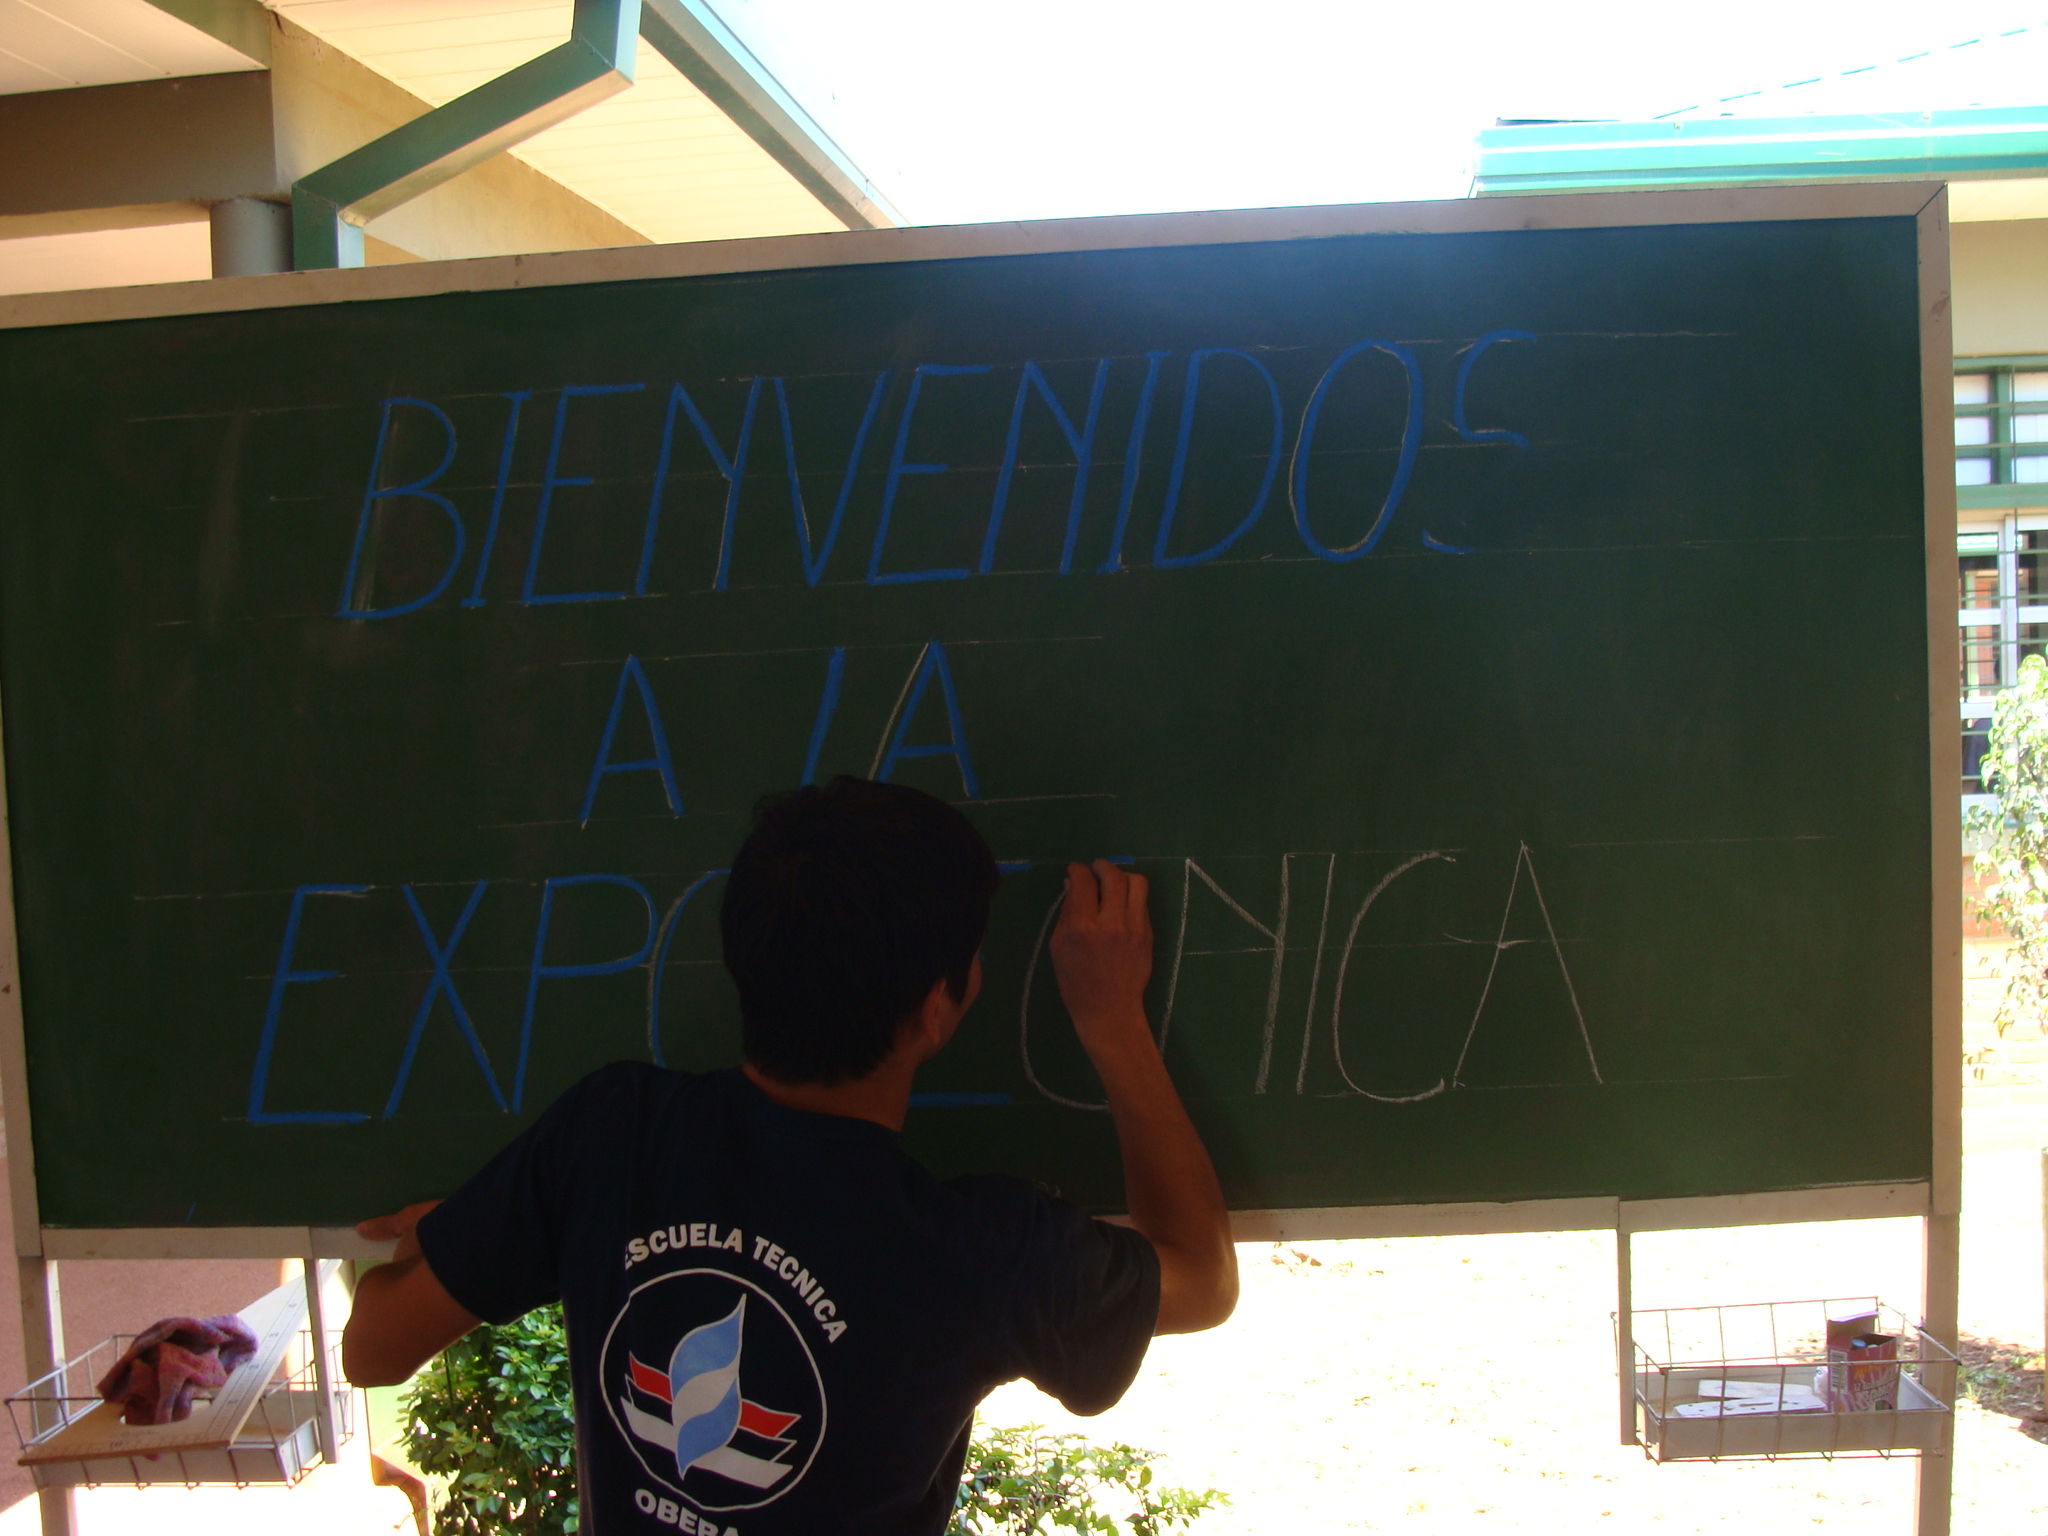 BIENVENIDOS
A LA
EXPO TECNICA
ESCUELA TECNICA
OBERA